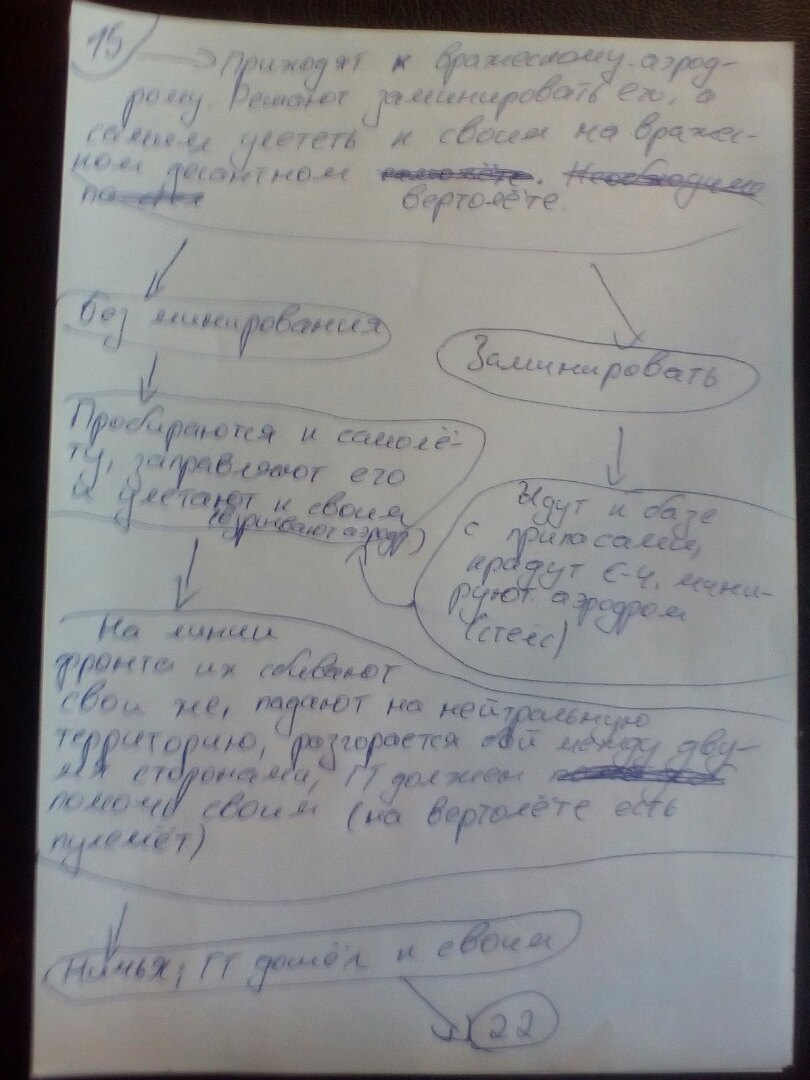 15
Приходят к вражескому аэрод-
рому. Решают заминировать ех, а
самим улететь к своим на вражес-
ком десантном самолёте. Необходимо
по вертолёте.
Без минирования
Заминировать
Пробираются к самолё-
ту, заправляют его
и улетают к своим
(взрывают аэродр)
Идут к базе
с припасами,
крадут С-4, мини-
руют аэродром
(стелс)
На линии
фронта их сбивают
свои же, падают на нейтральную
территорию, розгорается бой между дву-
мя сторонами, ГГ должен
помочь своим (на вертолёте есть
пулемёт)
Ничья, ГГ дошёл к своим
22